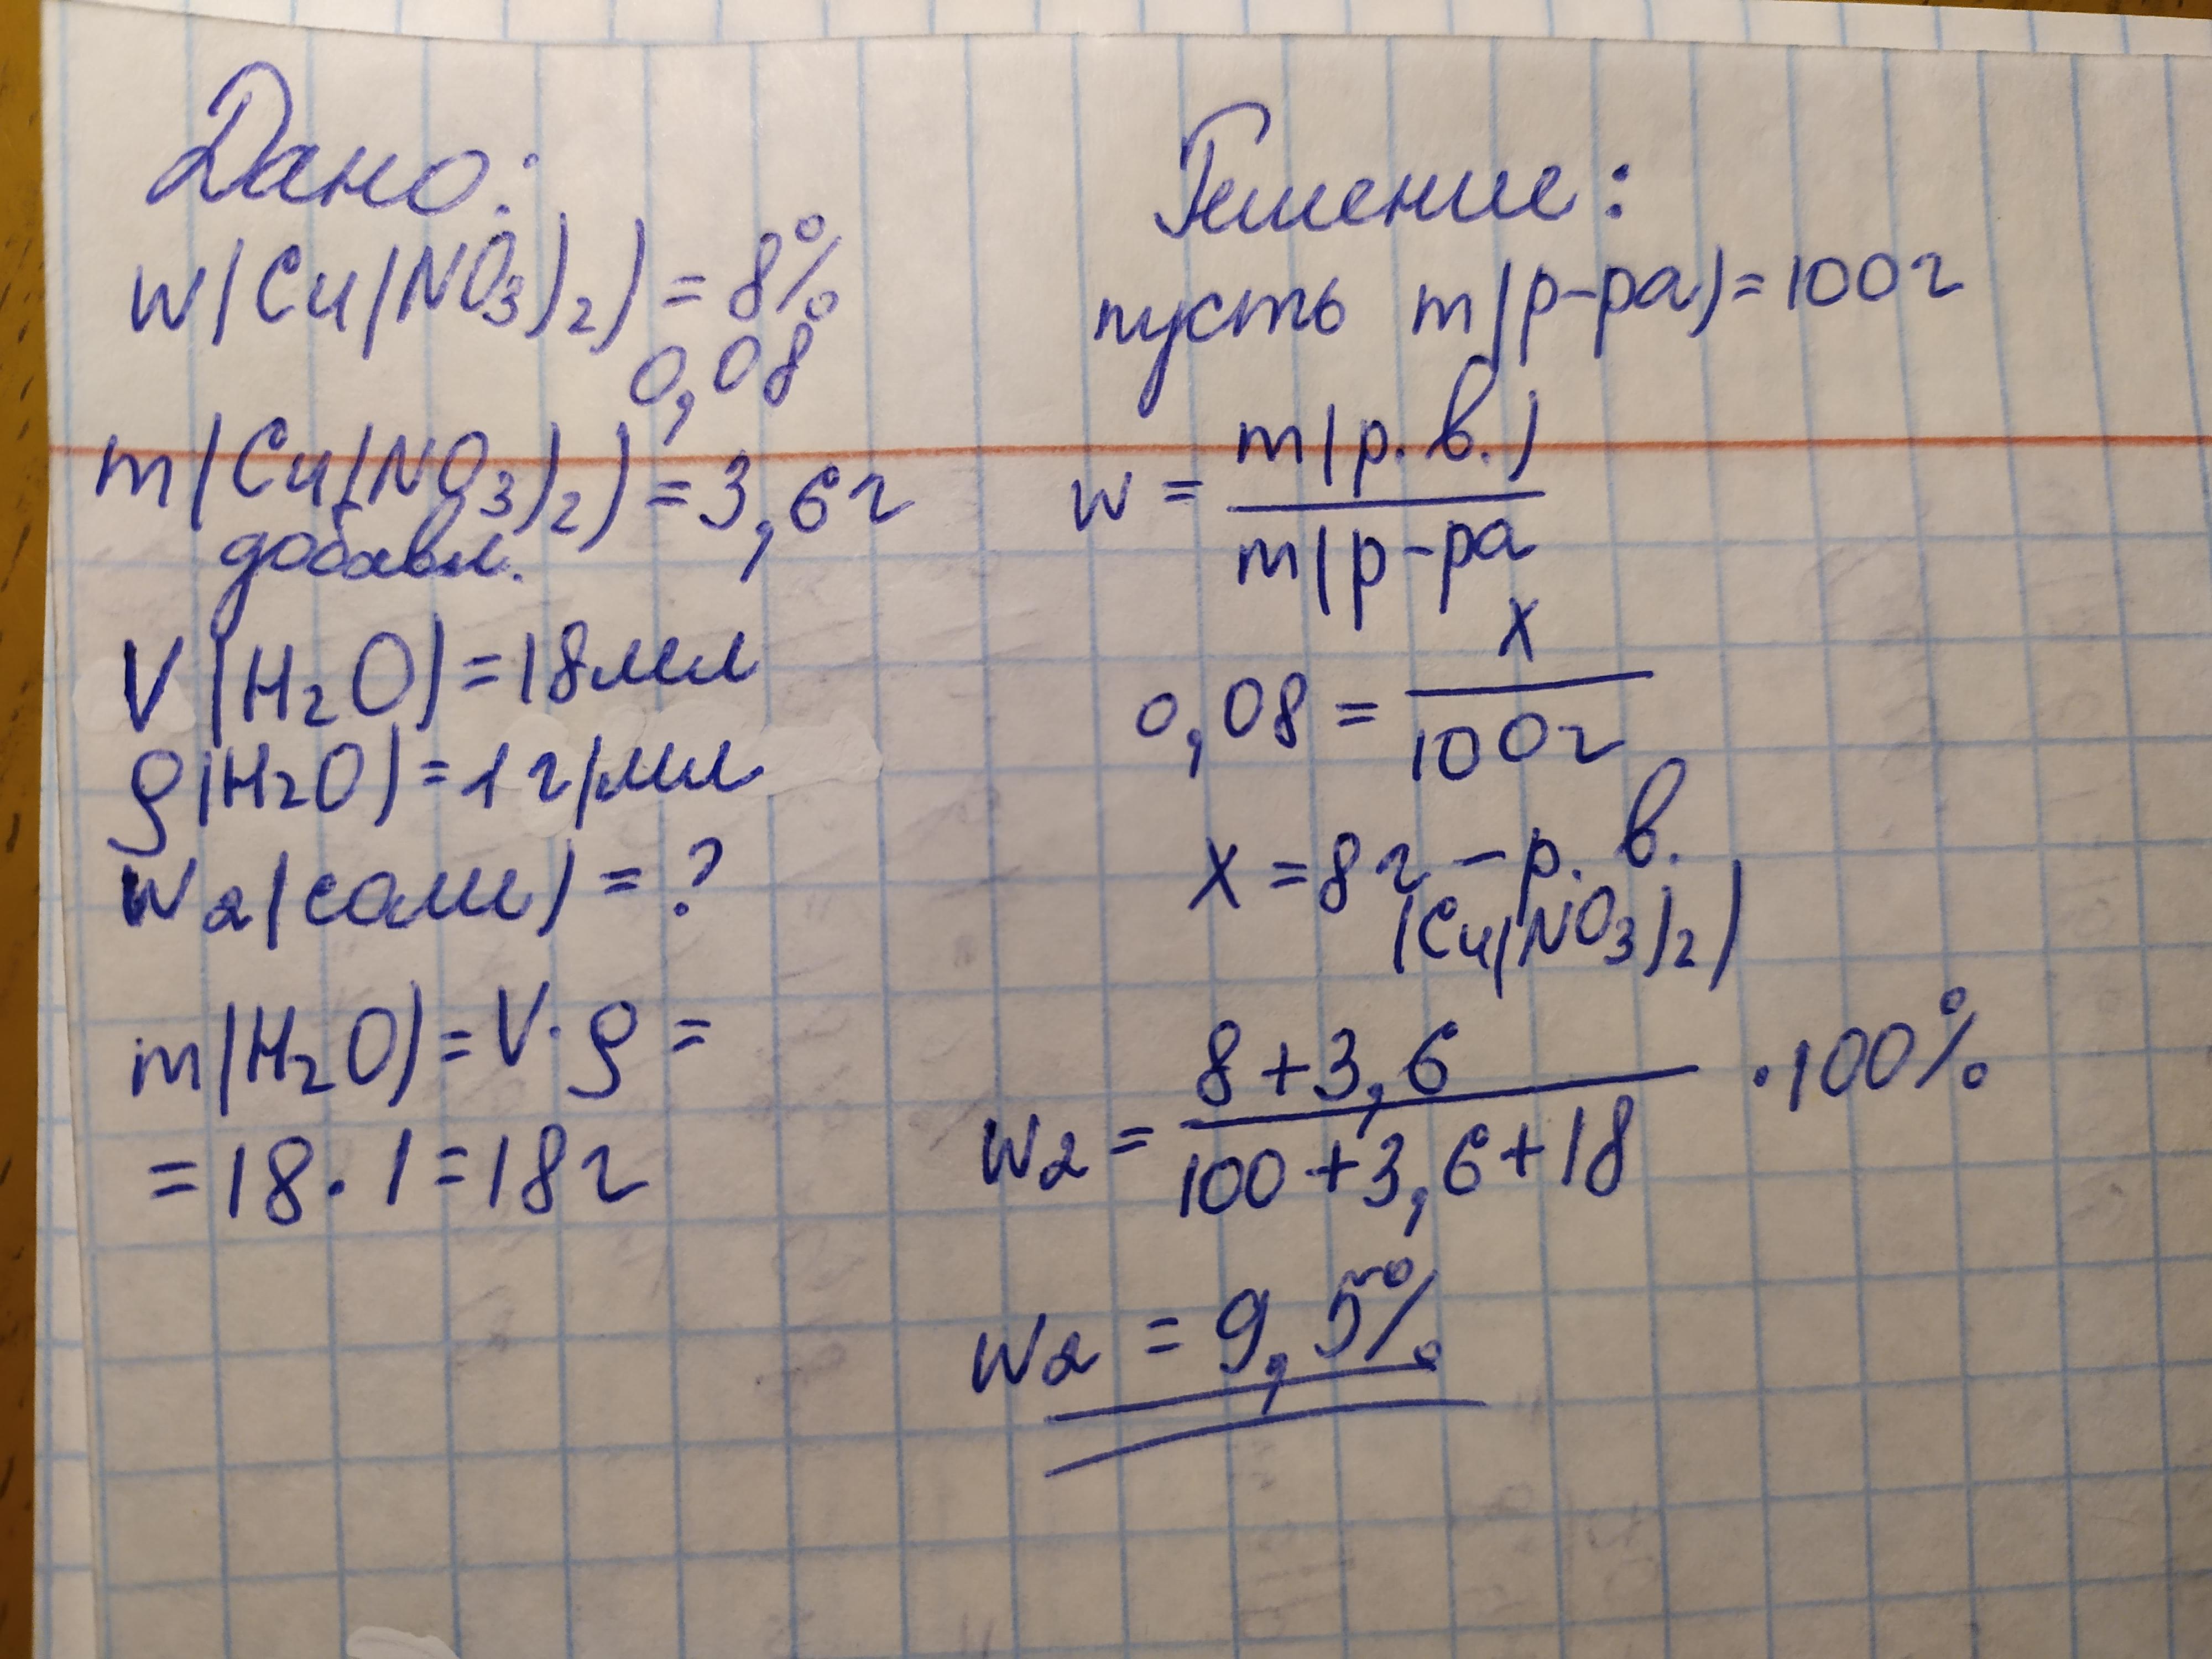 Дано:
W(Cu(NO₃)₂) = 8%
0,08
m(Cu(NO₃)₂) = 3,6г
добавл.
V(H₂O) = 18мл
ρ(H₂O) = 1г/мл
W₂(соли) = ?
m(H₂O) = V·ρ =
= 18·1 = 18г
Решение:
пусть m(р-ра) = 100г
w = m(р.в.) / m(р-ра
0,08 = x / 100г
x = 8г – р.в.
(Cu(NO₃)₂)
w₂ = 8+3,6 / 100+3,6+18 ·100%
w₂ = 9,5%